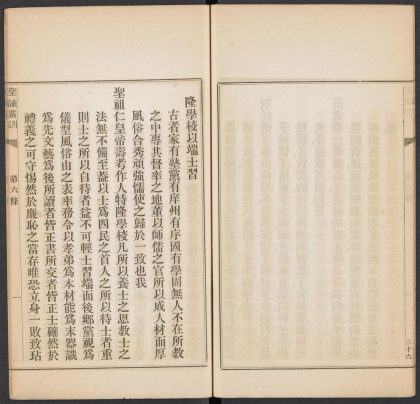 隆學校以端士習
古者家有塾黨有庠州有序國有學固無人不在所教
之中專其督率之地董以師儒之官所以成人材而厚
風俗合秀頑強懦使之歸於一致也我
聖祖仁皇帝壽考作人特隆學校凡所以養士之恩教士之
法無不備至蓋以士為四民之首人之所以待士者重
則士之所以自待者益不可輕士習端而後鄉黨視為
儀型風俗由之表率務令以孝弟為本材能為末器識
為先文藝為後所讀者皆正書所交者皆正士確然於
禮義之可守惕然於廉恥之當存唯恐立身一敗致玷
聖諭廣訓
第六條
三十六